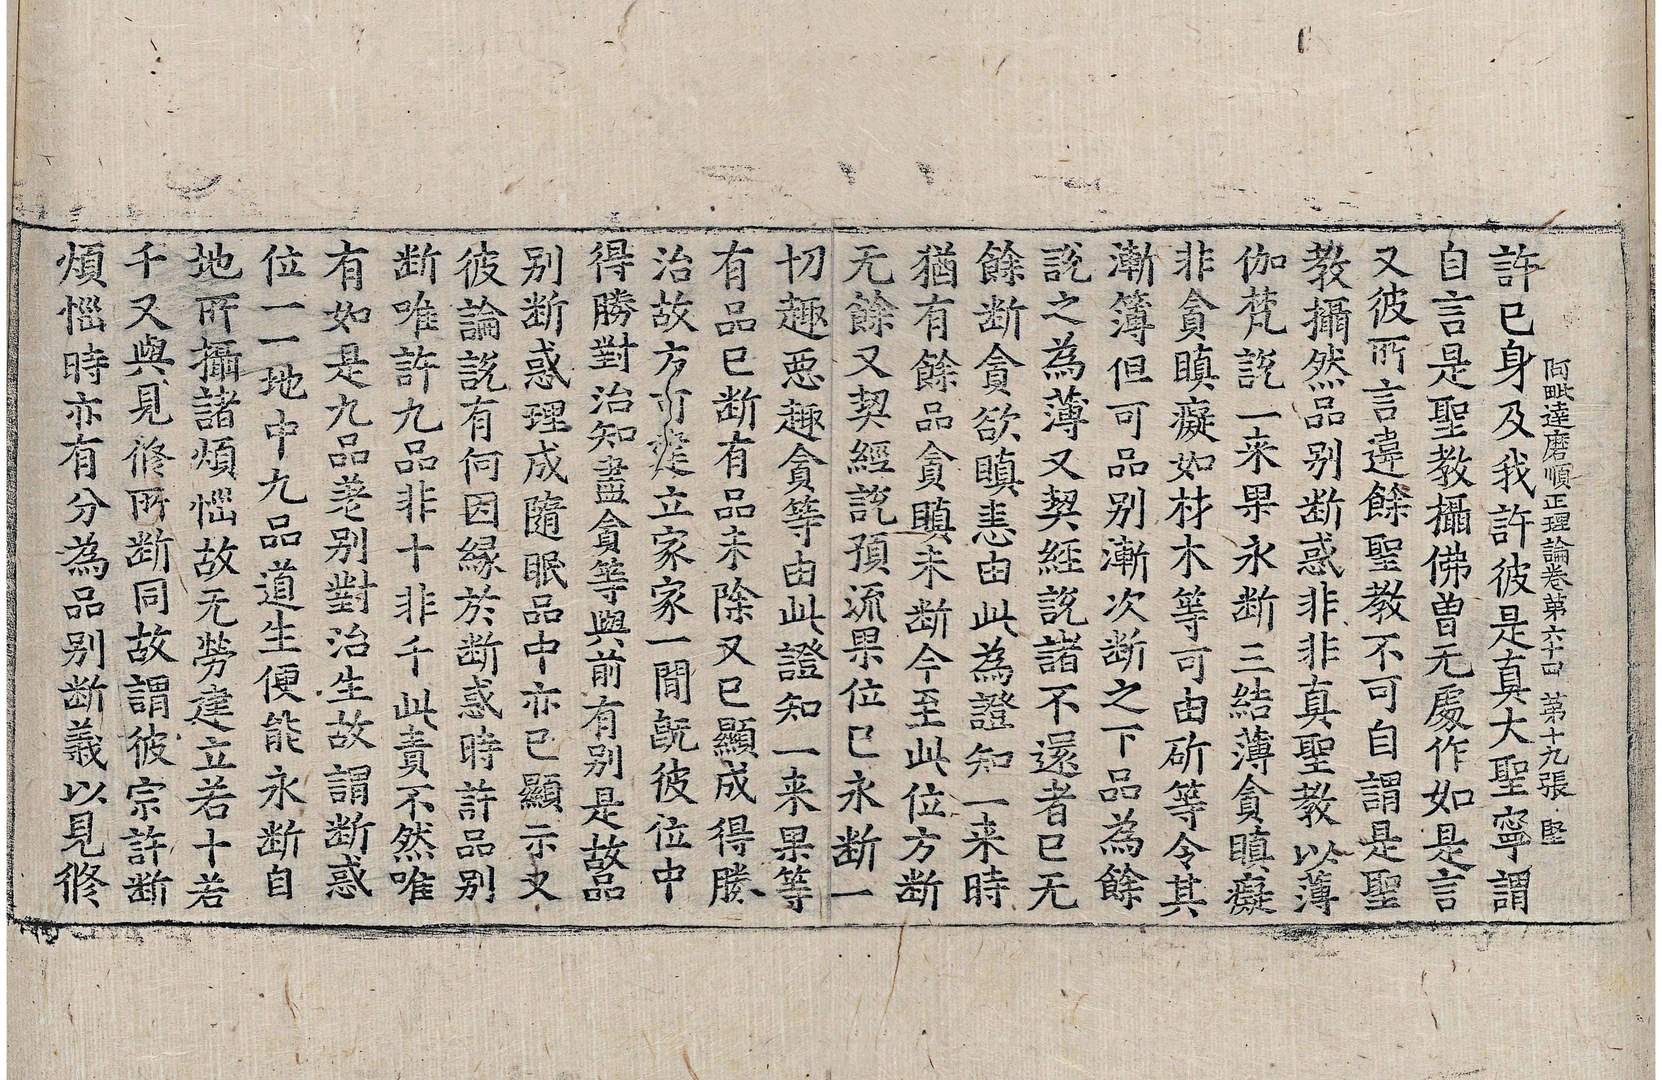 阿毗達磨順正理論卷第六十四 第十九張 堅
許已身及我許彼是真大聖寧謂
自言是聖教攝佛曾无處作如是言
又彼所言違餘聖教不可自謂是聖
教攝然品别断惑非非真聖教以薄
伽梵説一来果永断三結薄貪瞋癡
非貪瞋癡如材木等可由斫等令其
漸簿但可品别漸次断之下品為餘
説之為薄又契經説諸不還者已无
餘断貪欲瞋恚由此為證知一来時
猶有餘品貪瞋未断今至此位方断
无餘又契經説預流果位已永断一
切趣惡趣貪等由此證知一来果等
有品已断有品未除又已顯成得勝
治故方可建立家家一間旣彼位中
得勝對治知盡貪等與前有别是故品
别断惑理成隨眠品中亦已顯示又
彼論説有何因緣於断惑時許品别
断唯許九品非十非千此責不然唯
有如是九品差别對治生故謂断惑
位一一地中九品道生便能永断自
地所攝諸煩惱故无勞建立若十若
千又與見修所断同故謂彼宗許断
煩惱時亦有分為品别断義以見修